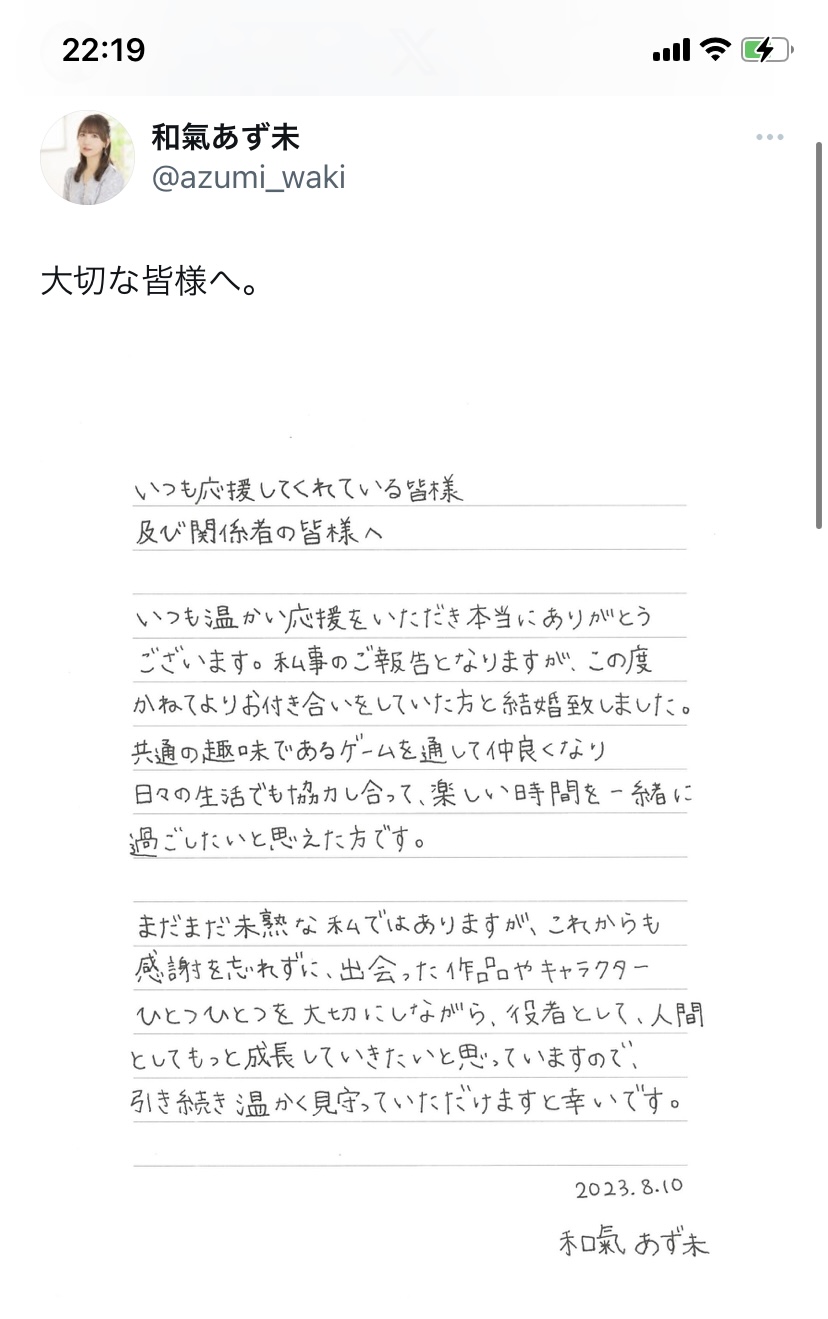 22:19
和氣あず未
@azumi_waki
大切な皆様へ。
いつも応援してくれている皆様
及び関係者の皆様へ
いつも温かい応援をいただき本当にありがとう
ございます。私事のご報告となりますが、この度
かねてよりお付き合いをしていた方と結婚致しました。
共通の趣味であるゲームを通して仲良くなり
日々の生活でも協力し合って、楽しい時間を一緒に
過ごしたいと思えた方です。
まだまだ未熟な私ではありますが、これからも
感謝を忘れずに、出会った作品やキャラクター
ひとつひとつを大切にしながら、役者として、人間
としてもっと成長していきたいと思っていますので、
引き続き温かく見守っていただけますと幸いです。
2023.8.10
和氣あず未